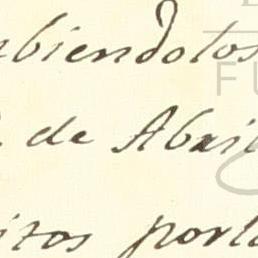 biendolos
de Abril
itos porla